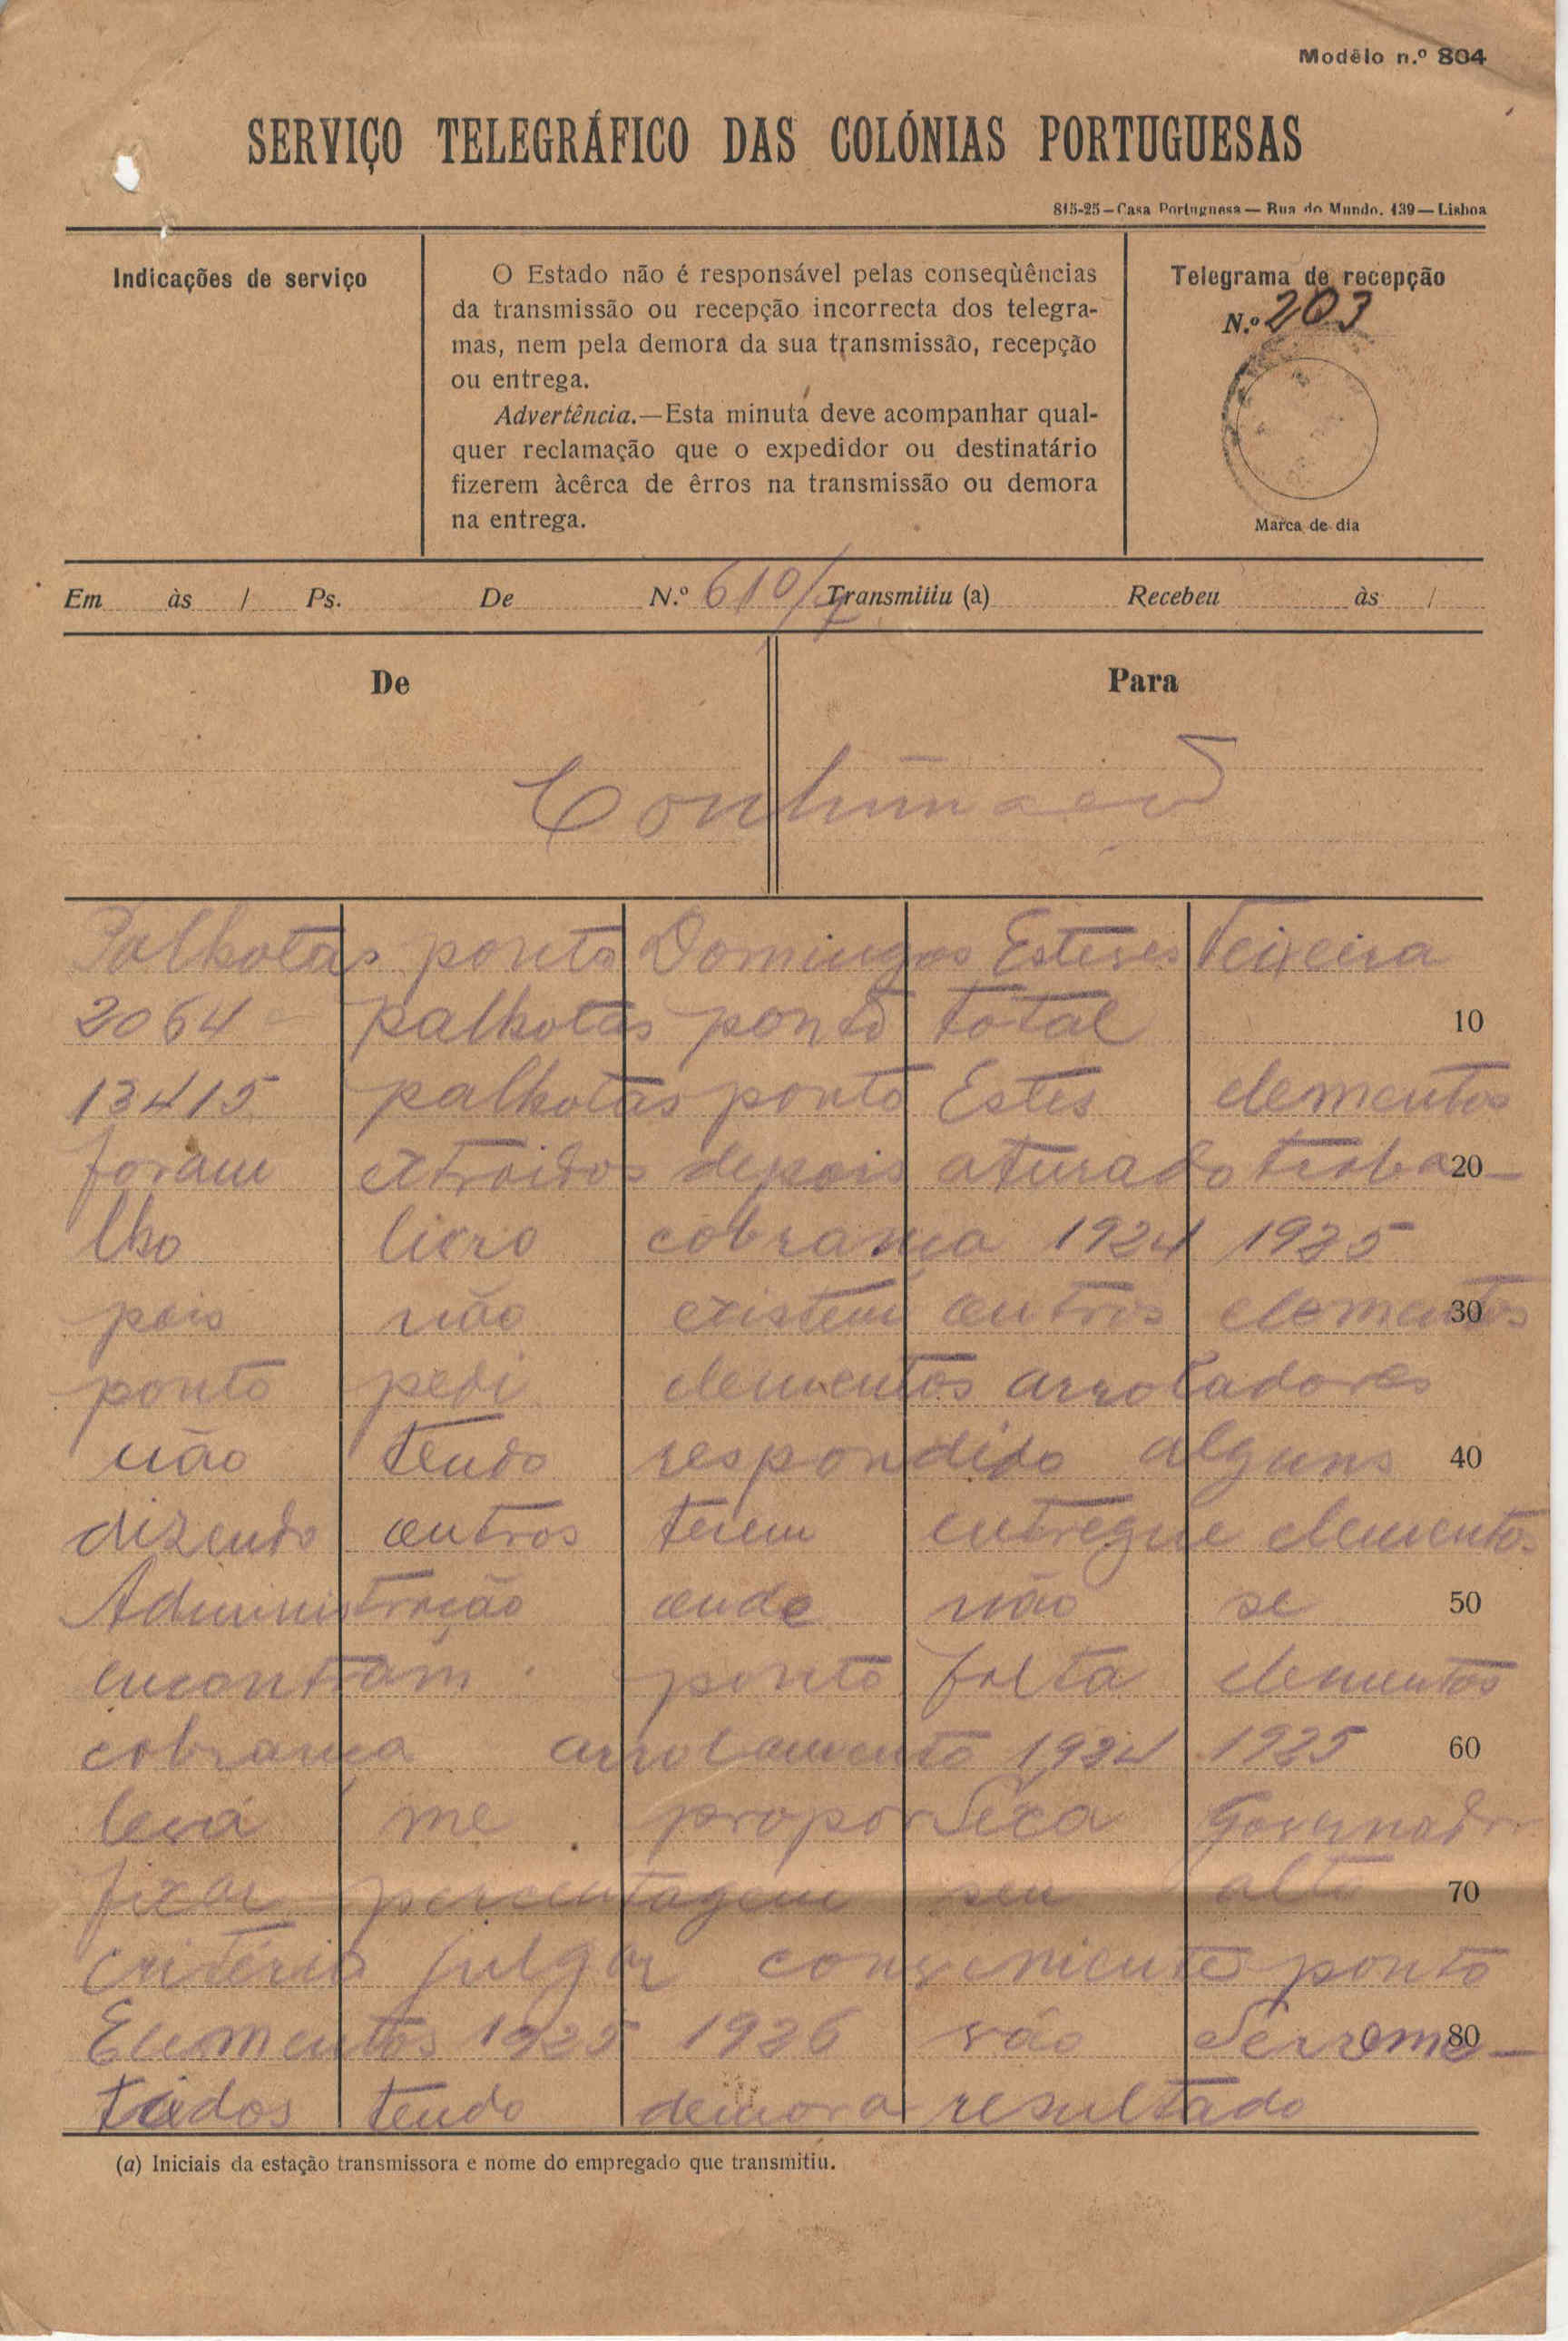 Modêlo n.º 804
SERVIÇO TELEGRÁFICO DAS COLÓNIAS PORTUGUESAS
815-25—Casa Portuguesa—Rua do Mundo, 139—Lisboa
Indicações de serviço
O Estado não é responsável pelas conseqùências
da transmissão ou recepção incorrecta dos telegra-
mas, nem pela demora da sua transmissão, recepção
ou entrega.
Advertência.—Esta minuta deve acompanhar qual-
quer reclamação que o expedidor ou destinatário
fizerem àcêrca de êrros na transmissão ou demora
na entrega.
Telegrama de recepção
N.º 203
Marca de dia
Em às / Ps. De N.º 610/7 Transmitiu (a) Recebeu às /
De
Para
Palhotas ponto Domingos Esteves Teixeira
2064 palhotas ponto total 10
13415 palhotas ponto Estes elementos
foram extraidos depois aturado traba- 20
lho livro cobrança 1924 1925
pois não existem outros elementos 30
ponto pedi elementos arroladores
não tendo respondido alguns 40
dizendo outros terem entregue elementos
Administração onde não se 50
encontram ponto falta elementos
cobrança arrolamento 1924 1925 60
leva me propor Sexa Governador
fixar percentagem seu alto 70
critério julgar conveniente ponto
Elementos 1925 1926 vão Ser reme- 80
tidos tendo demora resultado
(a) Iniciais da estação transmissora e nome do empregado que transmitiu.